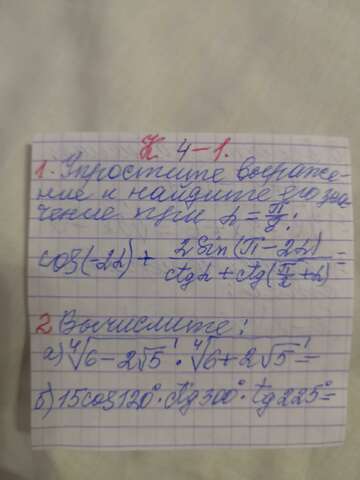 К 4-1.
1. Упростите выраже-
ние и найдите его зна
чение при α = π/8:
cos(-2α) + 2 sin(π-2α) / (ctgα + ctg(π/2 + α)) =
2 Вычислите:
а) ⁴√6-2√5 · ⁴√6+2√5 =
б) 15cos120° · ctg300° · tg225° =